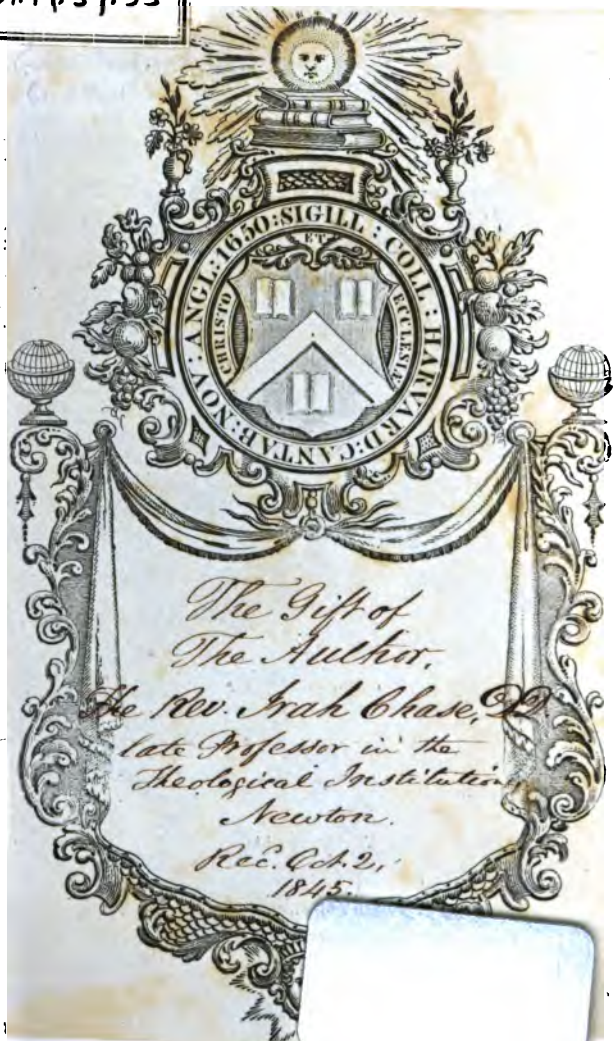 SIGILL : COLL : HARVARD : CANTAB : NOV : ANGL : 1650 :
CHRISTO ET ECCLESIÆ
The Gift of
The Author,
The Rev. Irah Chase, DD
late Professor in the
Theological Institution,
Newton.
Rec. Oct. 2,
1845.